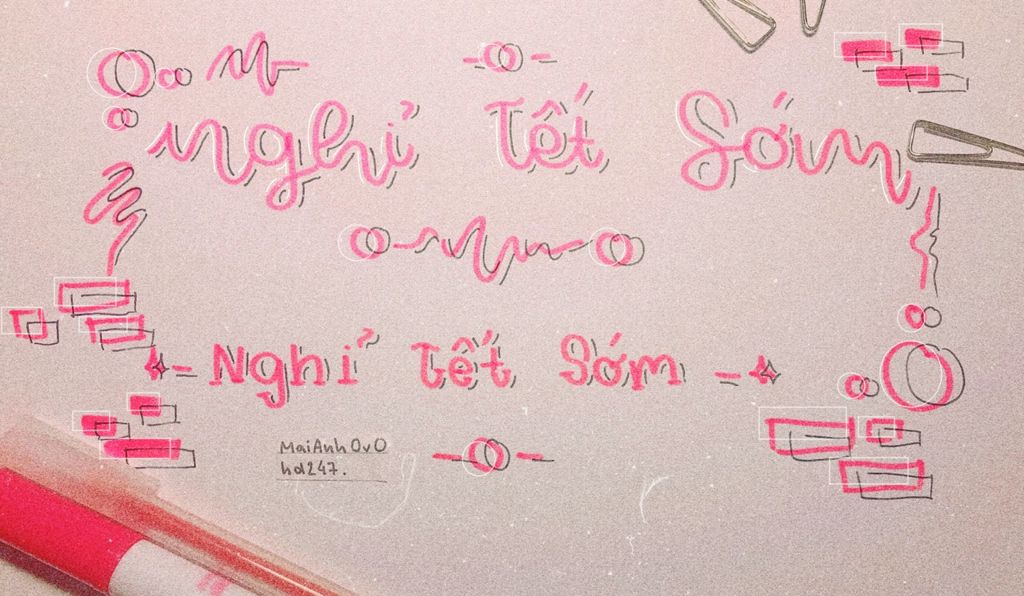 nghỉ Tết Sớm
Nghỉ Tết Sớm
MaiAnhOvO
hd247.